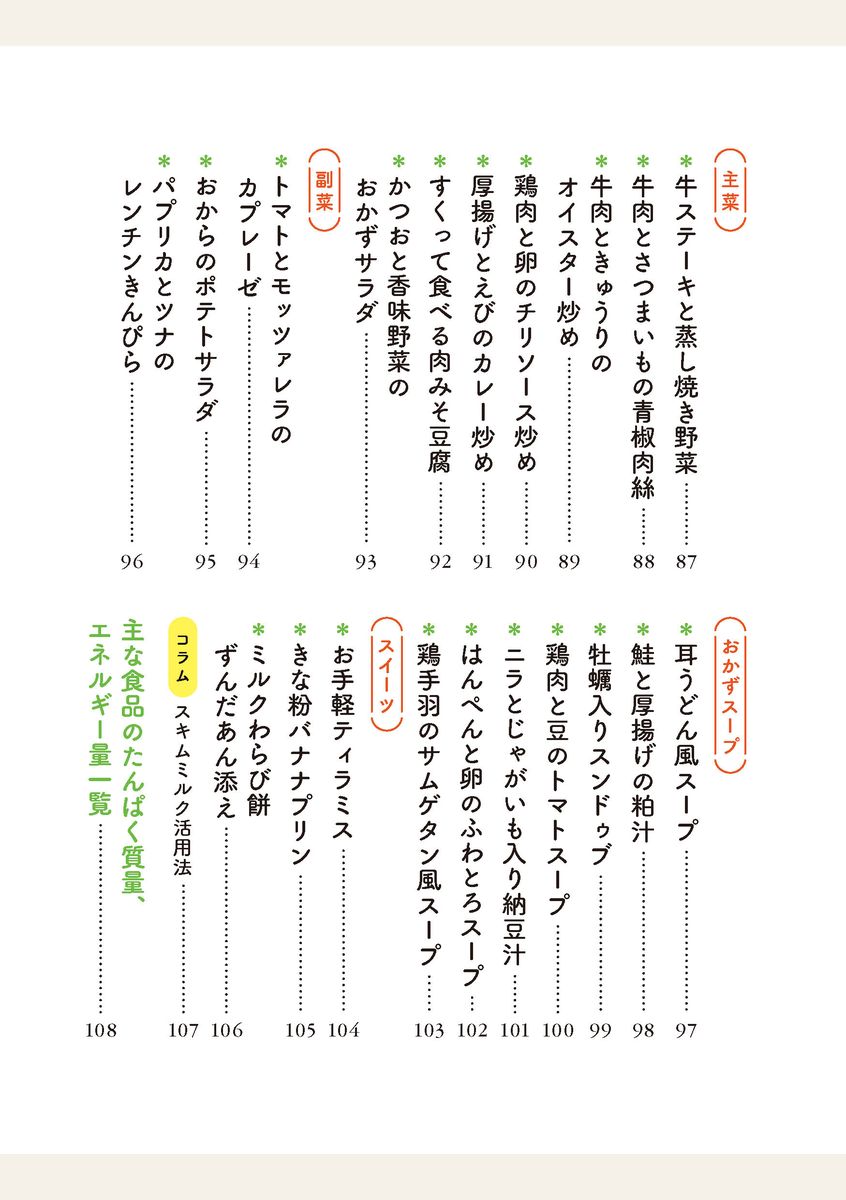 主菜
*牛ステーキと蒸し焼き野菜……87
*牛肉とさつまいもの青椒肉絲……88
*牛肉ときゅうりの
オイスター炒め……89
*鶏肉と卵のチリソース炒め……90
*厚揚げとえびのカレー炒め……91
*すくって食べる肉みそ豆腐……92
*かつおと香味野菜の
おかずサラダ……93
副菜
*トマトとモッツァレラの
カプレーゼ……94
*おからのポテトサラダ……95
*パプリカとツナの
レンチンきんぴら……96
おかずスープ
*耳うどん風スープ……97
*鮭と厚揚げの粕汁……98
*牡蠣入りスンドゥブ……99
*鶏肉と豆のトマトスープ……100
*ニラとじゃがいも入り納豆汁……101
*はんぺんと卵のふわとろスープ……102
*鶏手羽のサムゲタン風スープ……103
スイーツ
*お手軽ティラミス……104
*きな粉バナナプリン……105
*ミルクわらび餅
ずんだあん添え……106
コラム スキムミルク活用法……107
主な食品のたんぱく質量、
エネルギー量一覧……108